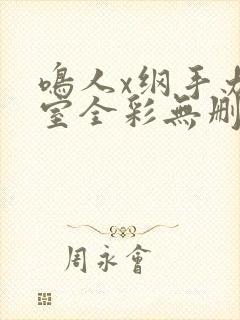 鳴人x纲手
室全彩無删
周永會